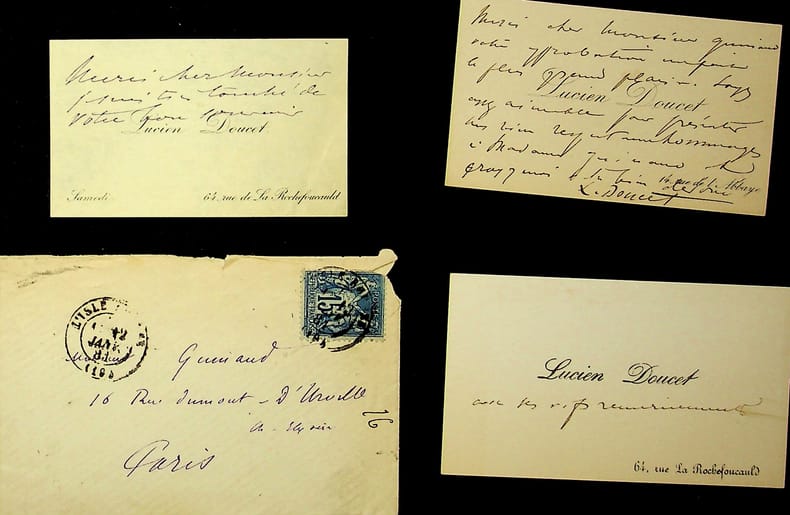 Merci cher Monsieur
je suis très touché de
votre bon souvenir
Lucien Doucet
Samedi
64, rue de La Rochefoucauld
Merci cher Monsieur Guiraud
votre approbation me fait
le plus grand plaisir. Soyez
Lucien Doucet
assez aimable pour présenter
mes bien respectueux hommages
à Madame Guiraud et
croyez moi
14, rue de l'Abbaye
L. Doucet
L'ISLE
12
JANV
(19)
15
Monsieur Guiraud
16 Rue Dumont-D'Urville
Ch-Elysées
Paris
Lucien Doucet
avec ses vifs remerciements
64, rue La Rochefoucauld